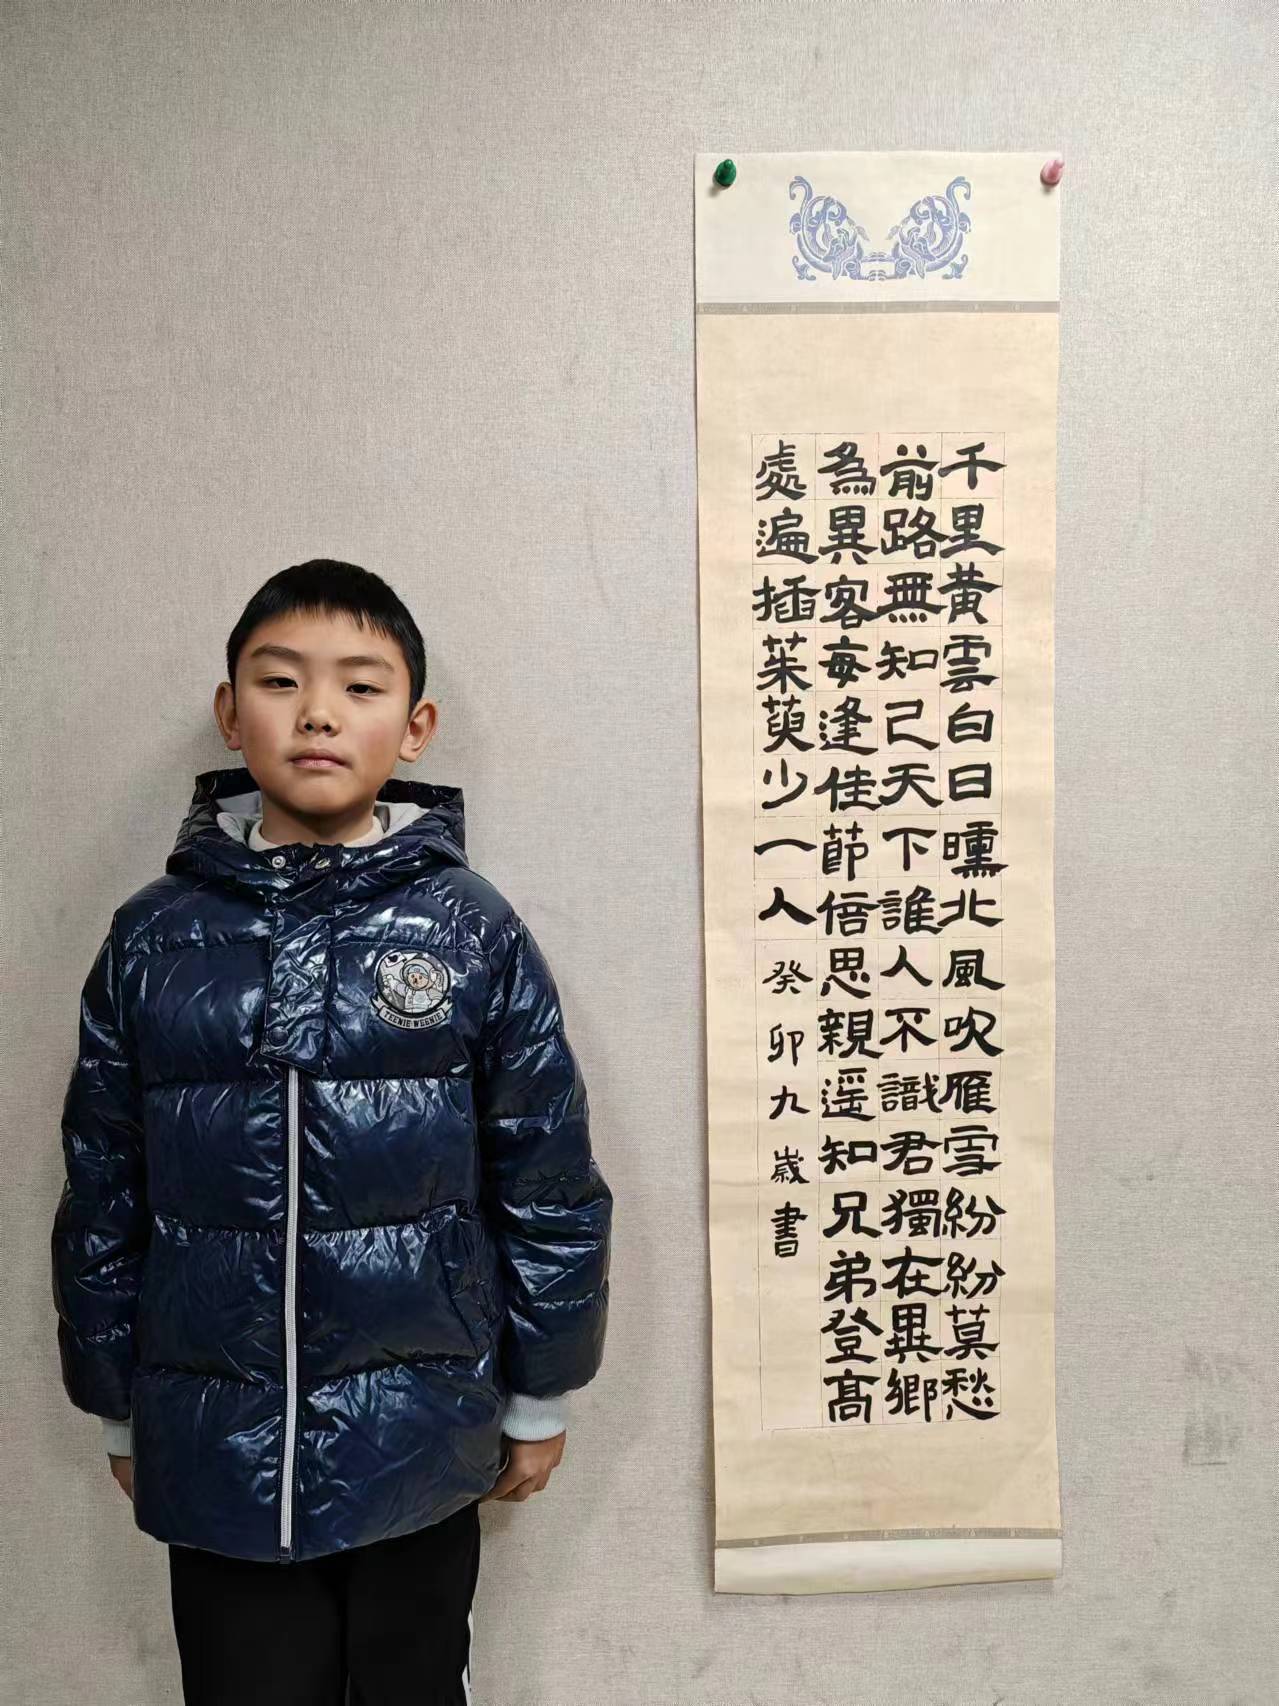 千里黄雲白日曛北風吹雁雪紛紛莫愁
前路無知己天下誰人不識君獨在異鄉
為異客每逢佳節倍思親遥知兄弟登髙
處遍插茱萸少一人
癸卯九歲書
TEENIE WEENIE